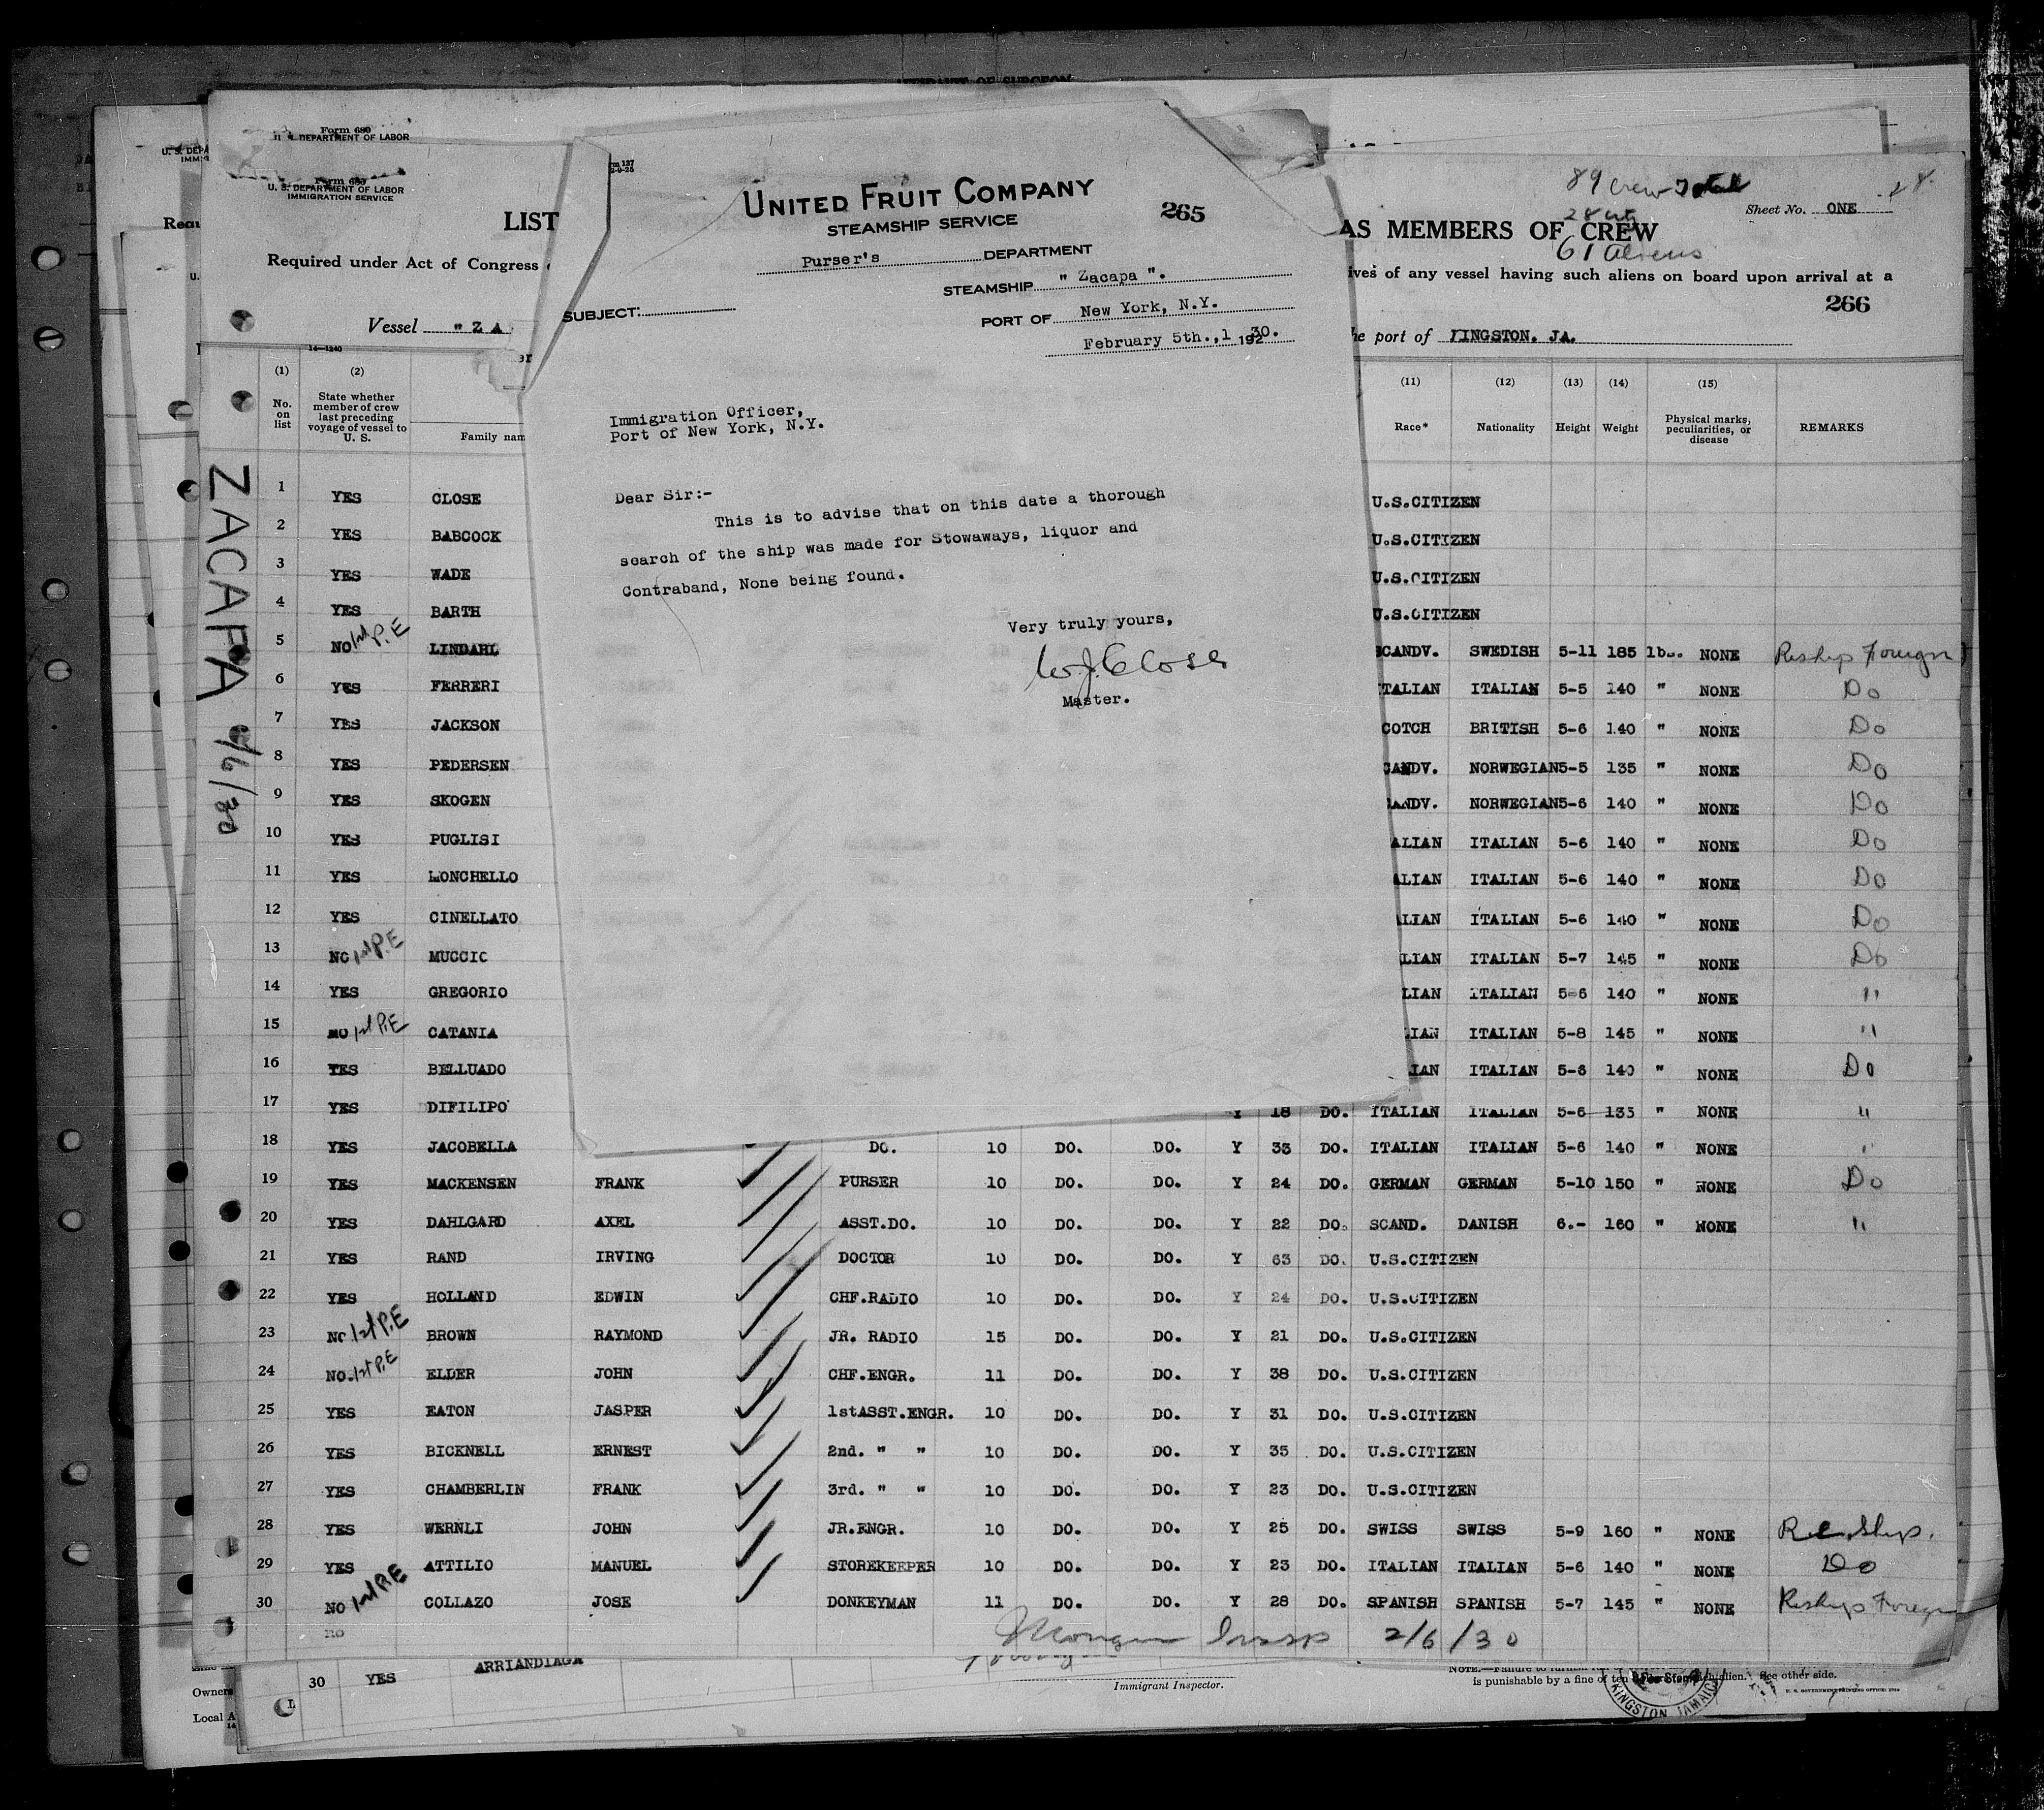 Form 680
U. S. DEPARTMENT OF LABOR
Form 680
U. S. DEPARTMENT OF LABOR
IMMIGRATION SERVICE
LIST
Required under Act of Congress
Vessel "ZA
UNITED FRUIT COMPANY
STEAMSHIP SERVICE
265
Purser's DEPARTMENT
STEAMSHIP " Zacapa ".
SUBJECT:
PORT OF New York, N.Y.
February 5th.,1 19230.
Immigration Officer,
Port of New York, N.Y.
Dear Sir:-
This is to advise that on this date a thorough
search of the ship was made for Stowaways, liquor and
Contraband, None being found.
Very truly yours,
W.J. Close
Master.
89 Crew Total
28
61 Aliens
Sheet No. ONE
AS MEMBERS OF CREW
ives of any vessel having such aliens on board upon arrival at a
266
he port of KINGSTON. JA.
14-1240
(1) (2) (11) (12) (13) (14) (15)
No. on list State whether member of crew last preceding voyage of vessel to U. S. Family nam Race* Nationality Height Weight Physical marks, peculiarities, or disease REMARKS
ZACAPA 2/6/30
1 YES CLOSE U.S.CITIZEN
2 YES BABCOCK U.S.CITIZEN
3 YES WADE U.S.CITIZEN
4 YES BARTH U.S.CITIZEN
5 NO 1st P.E LINDAHL SCANDV. SWEDISH 5-11 185 lbs. NONE Reship Foreign
6 YES FERRERI ITALIAN ITALIAN 5-5 140 " NONE Do
7 YES JACKSON COTCH BRITISH 5-6 140 " NONE Do
8 YES PEDERSEN CANDV. NORWEGIAN 5-5 135 " NONE Do
9 YES SKOGEN ANDV. NORWEGIAN 5-6 140 " NONE Do
10 YES PUGLISI ALIAN ITALIAN 5-6 140 " NONE Do
11 YES MONCHELLO ALIAN ITALIAN 5-6 140 " NONE Do
12 YES CINELLATO ALIAN ITALIAN 5-6 140 " NONE Do
13 NO 1st P.E MUCCIO LIAN ITALIAN 5-7 145 " NONE Do
14 YES GREGORIO LIAN ITALIAN 5-6 140 " NONE "
15 NO 1st P.E CATANIA IAN ITALIAN 5-8 145 " NONE "
16 YES BELLUADO IAN ITALIAN 5-6 140 " NONE Do
17 YES DIFILIPO Y 18 DO. ITALIAN ITALIAN 5-6 135 " NONE "
18 YES JACOBELLA DO. 10 DO. DO. Y 33 DO. ITALIAN ITALIAN 5-6 140 " NONE "
19 YES MACKENSEN FRANK PURSER 10 DO. DO. Y 24 DO. GERMAN GERMAN 5-10 150 " NONE Do
20 YES DAHLGARD AXEL ASST.DO. 10 DO. DO. Y 22 DO. SCAND. DANISH 6.- 160 " NONE "
21 YES RAND IRVING DOCTOR 10 DO. DO. Y 63 DO. U.S.CITIZEN
22 YES HOLLAND EDWIN CHF.RADIO 10 DO. DO. Y 24 DO. U.S.CITIZEN
23 NO 1st P.E BROWN RAYMOND JR. RADIO 15 DO. DO. Y 21 DO. U.S.CITIZEN
24 NO. 1st P.E ELDER JOHN CHF.ENGR. 11 DO. DO. Y 38 DO. U.S.CITIZEN
25 YES EATON JASPER 1stASST.ENGR. 10 DO. DO. Y 31 DO. U.S.CITIZEN
26 YES BICKNELL ERNEST 2nd. " " 10 DO. DO. Y 35 DO. U.S.CITIZEN
27 YES CHAMBERLIN FRANK 3rd. " " 10 DO. DO. Y 23 DO. U.S.CITIZEN
28 YES WERNLI JOHN JR.ENGR. 10 DO. DO. Y 25 DO. SWISS SWISS 5-9 160 " NONE Re.Ship.
29 YES ATTILIO MANUEL STOREKEEPER 10 DO. DO. Y 23 DO. ITALIAN ITALIAN 5-6 140 " NONE Do
30 NO 1st P.E COLLAZO JOSE DONKEYMAN 11 DO. DO. Y 28 DO. SPANISH SPANISH 5-7 145 " NONE Reship Foreign
2/6/30
30 YES ARRIANDIAGA
Immigrant Inspector.
Owners
Local A
NOTE.—Failure to furnish
is punishable by a fine of ten alien. See other side.
KINGSTON JAMAICA